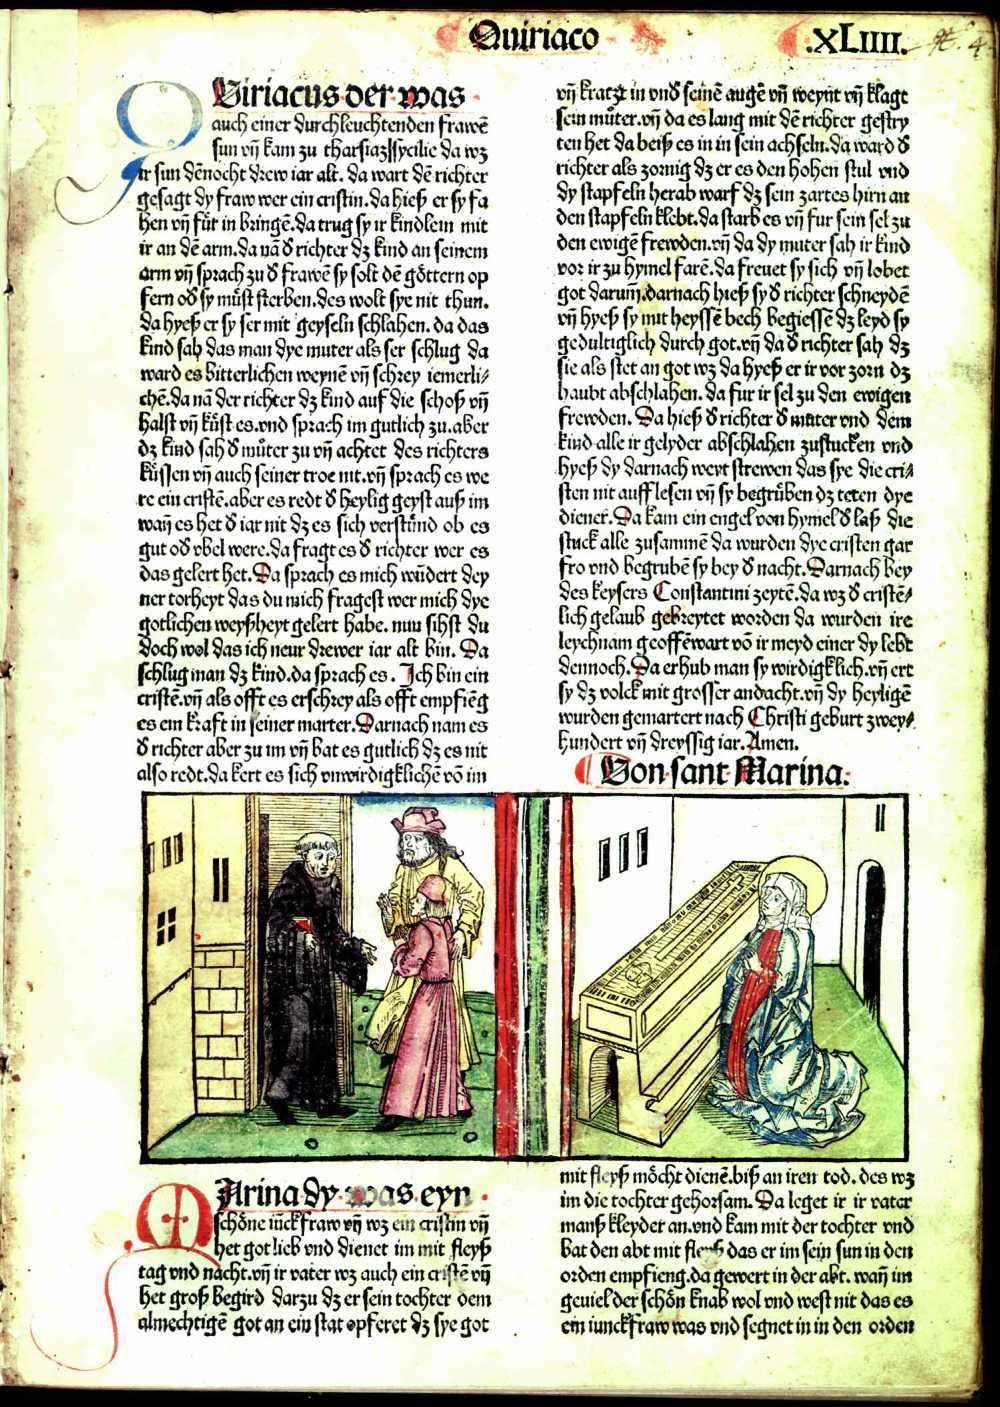 Quiriaco
.XLIIII.
QViriacus der was
auch einer durchleuchtenden frawē
sun vn̄ kam zu tharsiazssycilie da wz
ir sun dēnocht drew iar alt. da wart dē richter
gesagt dy fraw wer ein cristin. da hieß er sy fa
hen vn̄ fu̇r in bringē. da trug sy ir kindlein mit
ir an dē arm. da nā d̕ richter dz kind an seinem
arm vn̄ sprach zu d̕ frawē sy solt dē göttern op
fern od̕ sy mu̇st sterben. des wolt sye nit thun.
da hyeß er sy ser mit geyseln schlahen. da das
kind sah das man dye muter als ser schlug da
ward es bitterlichen weynē vn̄ schrey iemerli⸗
chē. da nā der richter dz kind auf die schoß vn̄
halst vn̄ ku̇st es. vnd sprach im gutlich zu. aber
dz kind sah d̕ mu̇ter zu vn̄ achtet des richters
ku̇ssen vn̄ auch seiner troe nit. vn̄ sprach es we
re ein cristē. aber es redt d̕ heylig geyst auß im
wan̄ es het d̕ iar nit dz es sich verstu̇nd ob es
gut od̕ vbel were. da fragt es d̕ richter wer es
das gelert het. Da sprach es mich wu̇dert dey
ner torheyt das du mich fragest wer mich dye
gotlichen weyßheyt gelert habe. nun sihst du
doch wol das ich neur drewer iar alt bin. Da
schlug man dz kind. da sprach es. Ich bin ein
cristē. vn̄ als offt es erschrey als offt empfiēg
es ein kraft in seiner marter. Darnach nam es
d̕ richter aber zu im vn̄ bat es gutlich dz es nit
also redt. da kert es sich vnwirdigklichē vō im
vn̄ kratzt in vnd̕ seinē augē vn̄ weynt vn̄ klagt
sein mu̇ter. vn̄ da es lang mit dē richter gestry
ten het da beiß es in in sein achseln. da ward d̕
richter als zornig dz er es den hohen stul vnd
dy stapfeln herab warf dz sein zartes hirn an
den stapfeln klebt. da starb es vn̄ fur sein sel zu
den ewigē frewden. vn̄ da dy muter sah ir kind
vor ir zu hymel farē. da frewet sy sich vn̄ lobet
got darum̄. darnach hieß sy d̕ richter schneydē
vn̄ hyeß sy mit heyssē bech begiessē dz leyd sy
gedultiglich durch got. vn̄ da d̕ richter sah dz
sie als stet an got wz da hyeß er ir vor zorn dz
haubt abschlahen. da fur ir sel zu den ewigen
frewden. Da hieß d̕ richter d̕ muter vnd dem
kind alle ir gelyder abschlahen zustucken vnd
hyeß dy darnach weyt strewen das sye die cri⸗
sten nit aufflesen vn̄ sy begru̇ben dz teten dye
diener. Da kam ein engel von hymel d̕ laß die
stuck alle zusammē da wurden dye cristen gar
fro vnd begrubē sy bey d̕ nacht. Darnach bey
des keysers Constantini zeytē. da wz d̕ cristē⸗
lich gelaub gebreytet worden da wurden ire
leychnam geoffēwart vō ir meyd einer dy lebt
dennoch. Da erhub man sy wirdigklich. vn̄ ert
sy dz volck mit grosser andacht. vn̄ dy heyligē
wurden gemartert nach Christi geburt zwey⸗
hundert vn̄ dreyssig iar. Amen.
Von sant Marina.
MArina dy was eyn
schöne iu̇ckfraw vn̄ wz ein cristin vn̄
het got lieb vnd dienet im mit fleyß
tag vnd nacht. vn̄ ir vater wz auch ein cristē vn̄
het groß begird darzu dz er sein tochter dem
almechtigē got an ein stat opferet dz sye got
mit fleyß möcht dienē. biß an iren tod. des wz
im die tochter gehorsam. Da leget ir ir vater
manß kleyder an. vnd kam mit der tochter vnd
bat den abt mit fleyß das er im sein sun in den
orden empfieng. da gewert in der abt. wan̄ im
geuiel der schön knab wol vnd west nit das es
ein iunckfraw was vnd segnet in in den orden